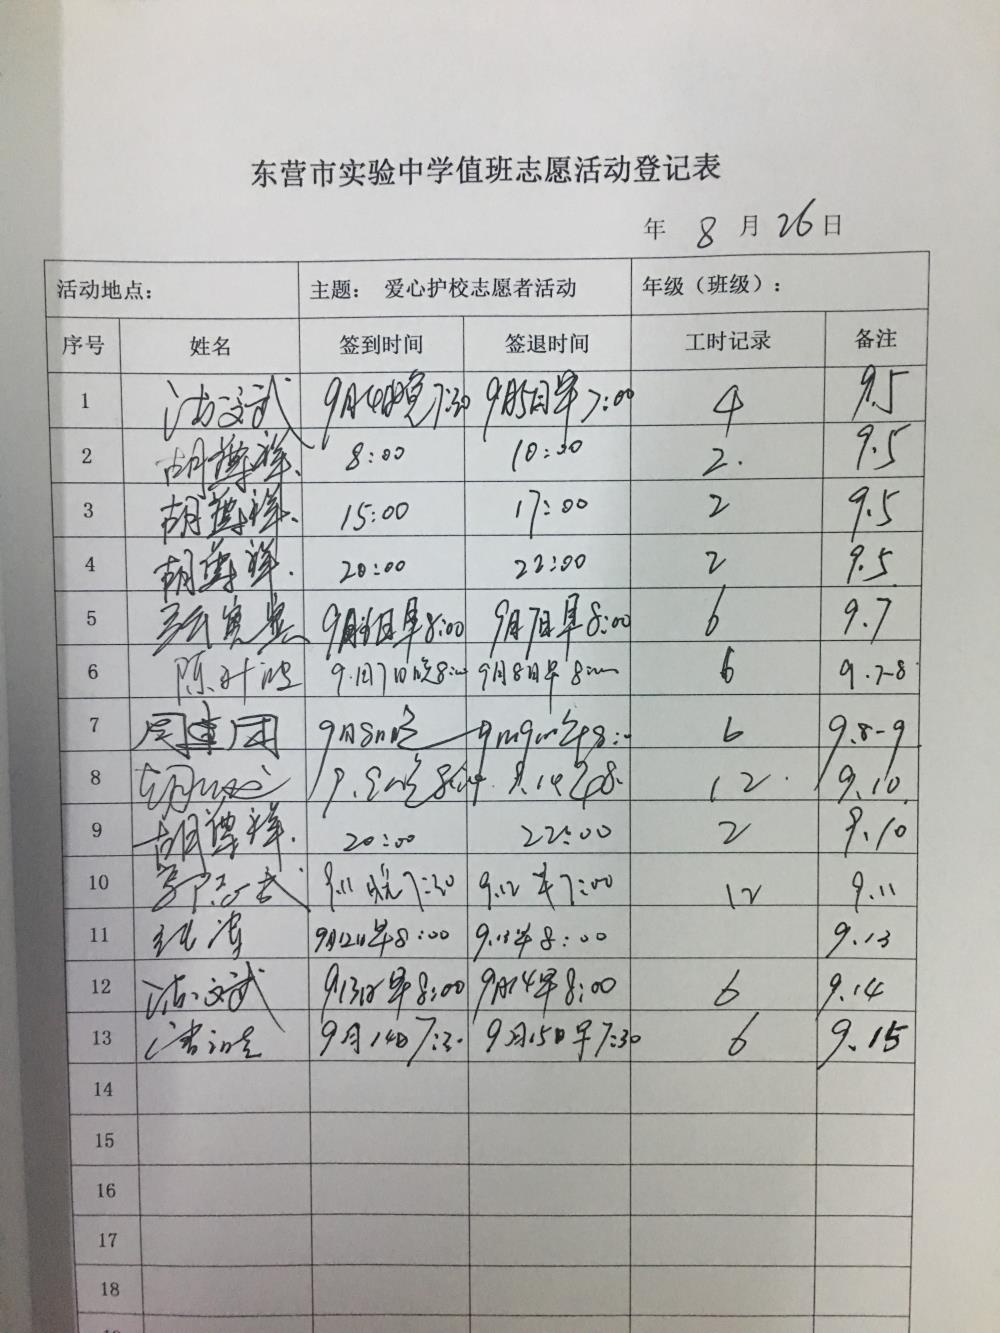 东营市实验中学值班志愿活动登记表
年 8 月 26 日
活动地点： 主题： 爱心护校志愿者活动 年级（班级）：
序号 姓名 签到时间 签退时间 工时记录 备注
1 文武 9月4日晚7:30 9月5日早7:00 4 9.5
2 胡尊祥 8:00 10:30 2 9.5
3 胡尊祥 15:00 17:00 2 9.5
4 胡尊祥 20:00 22:00 2 9.5
5 早8:00 9月7日早8:00 6 9.7
6 陈叶波 9月7日晚8:00 9月8日早8:00 6 9.7-8
7 周建国 9月8日晚 6 9.8-9
8 12 9.10
9 胡尊祥 20:00 22:00 2 9.10
10 9.11晚7:30 9.12早7:00 12 9.11
11 9月12日早8:00 9.13早8:00 9.13
12 文武 9月13日早8:00 9月14早8:00 6 9.14
13 9月14日7:30 9月15日早7:30 6 9.15
14
15
16
17
18